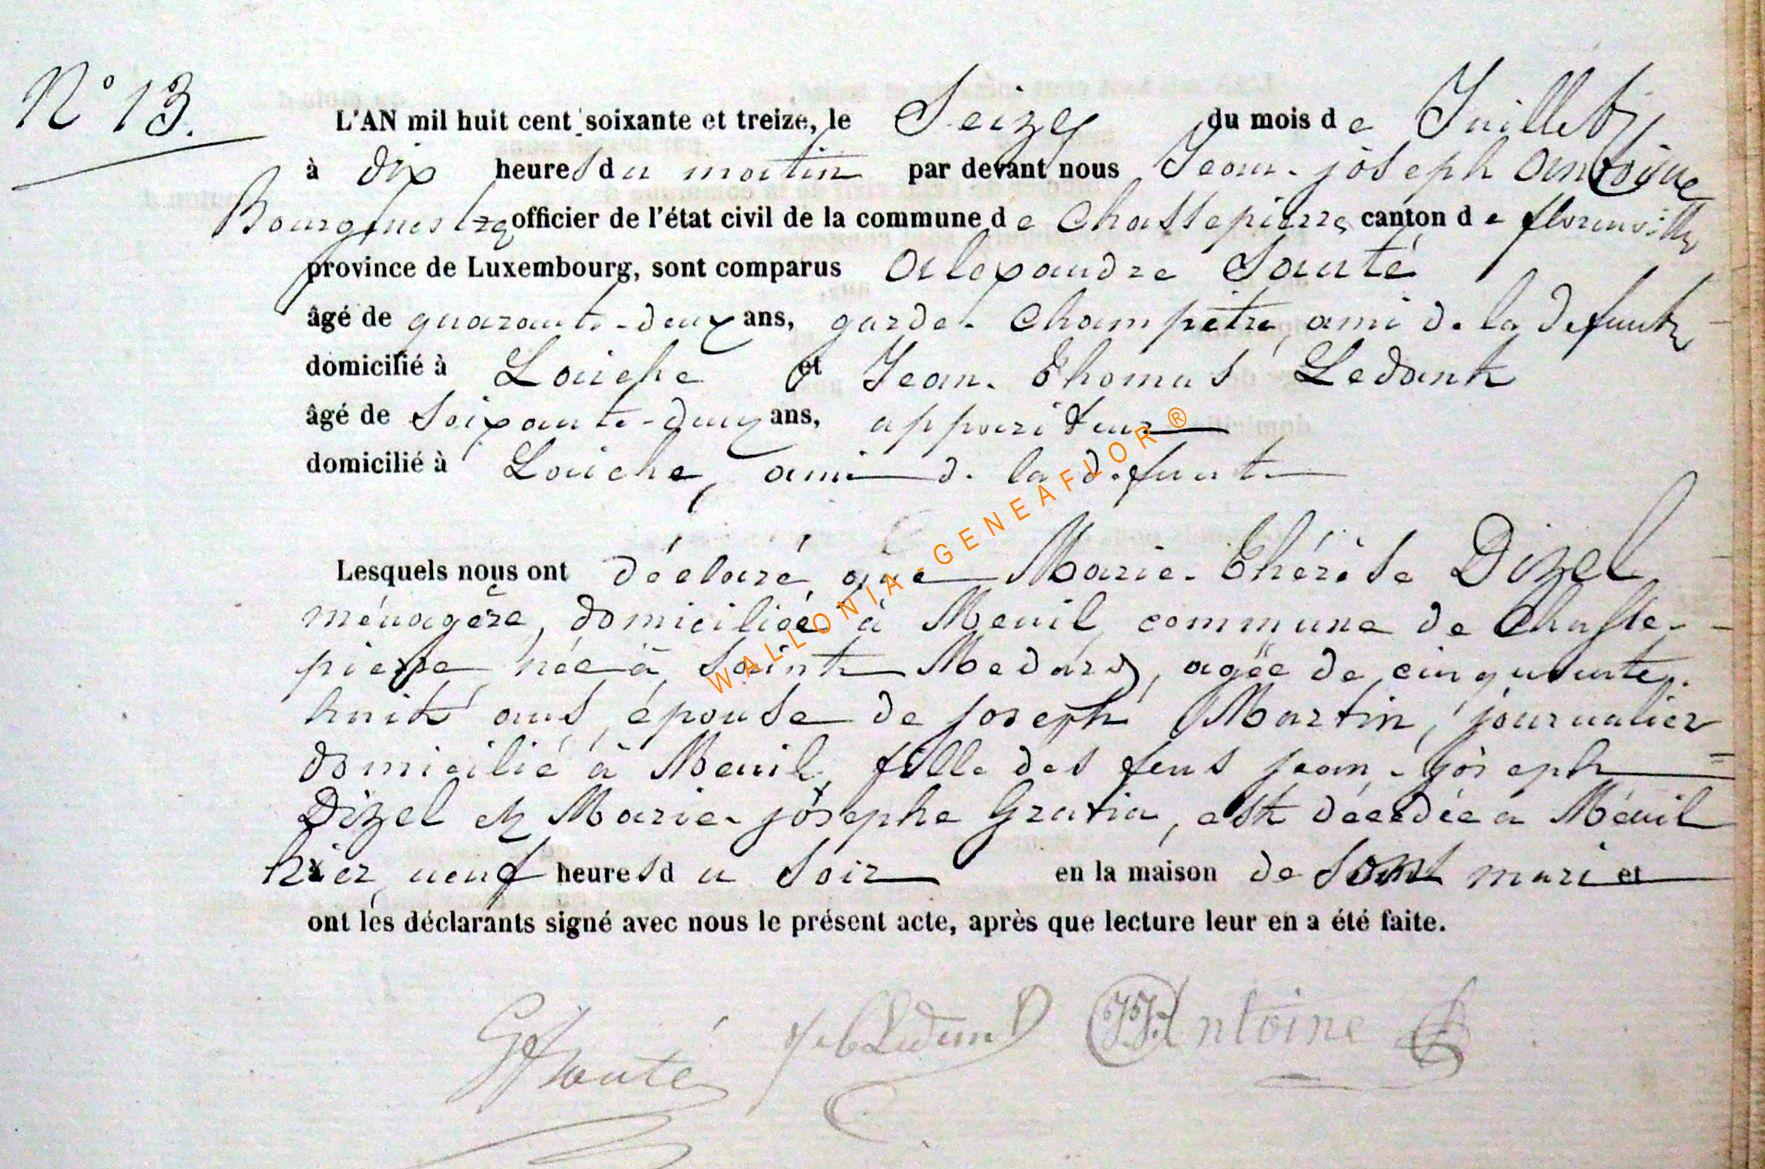 N° 13.
L'AN mil huit cent soixante et treize, le Seize du mois de Juillet
à dix heures du matin par devant nous Jean-joseph Antoine
Bourgmestre officier de l'état civil de la commune de Chassepierre canton de florenville
province de Luxembourg, sont comparus Alexandre Santé
âgé de quarante-deux ans, garde-Champêtre, ami de la defunte
domicilié à Laiche et Jean-Thomas Ledant
âgé de Soixante-deux ans, appariteur
domicilié à Laiche, ami de la defunte
Lesquels nous ont déclaré que Marie-Thérèse Dizel
ménagère, domiciliée à Menil commune de Chasse-
pierre, née à Saint Medard, agée de cinquante-
huit ans, épouse de joseph Martin, journalier
domicilié à Menil, fille des feus jean-joseph
Dizel et Marie-josephe Gratia, est décédée à Ménil
hier, neuf heures du Soir en la maison de son mari et
ont les déclarants signé avec nous le présent acte, après que lecture leur en a été faite.
Santé Ledant JJ Antoine
WALLONIA-GENEAFLOR ®